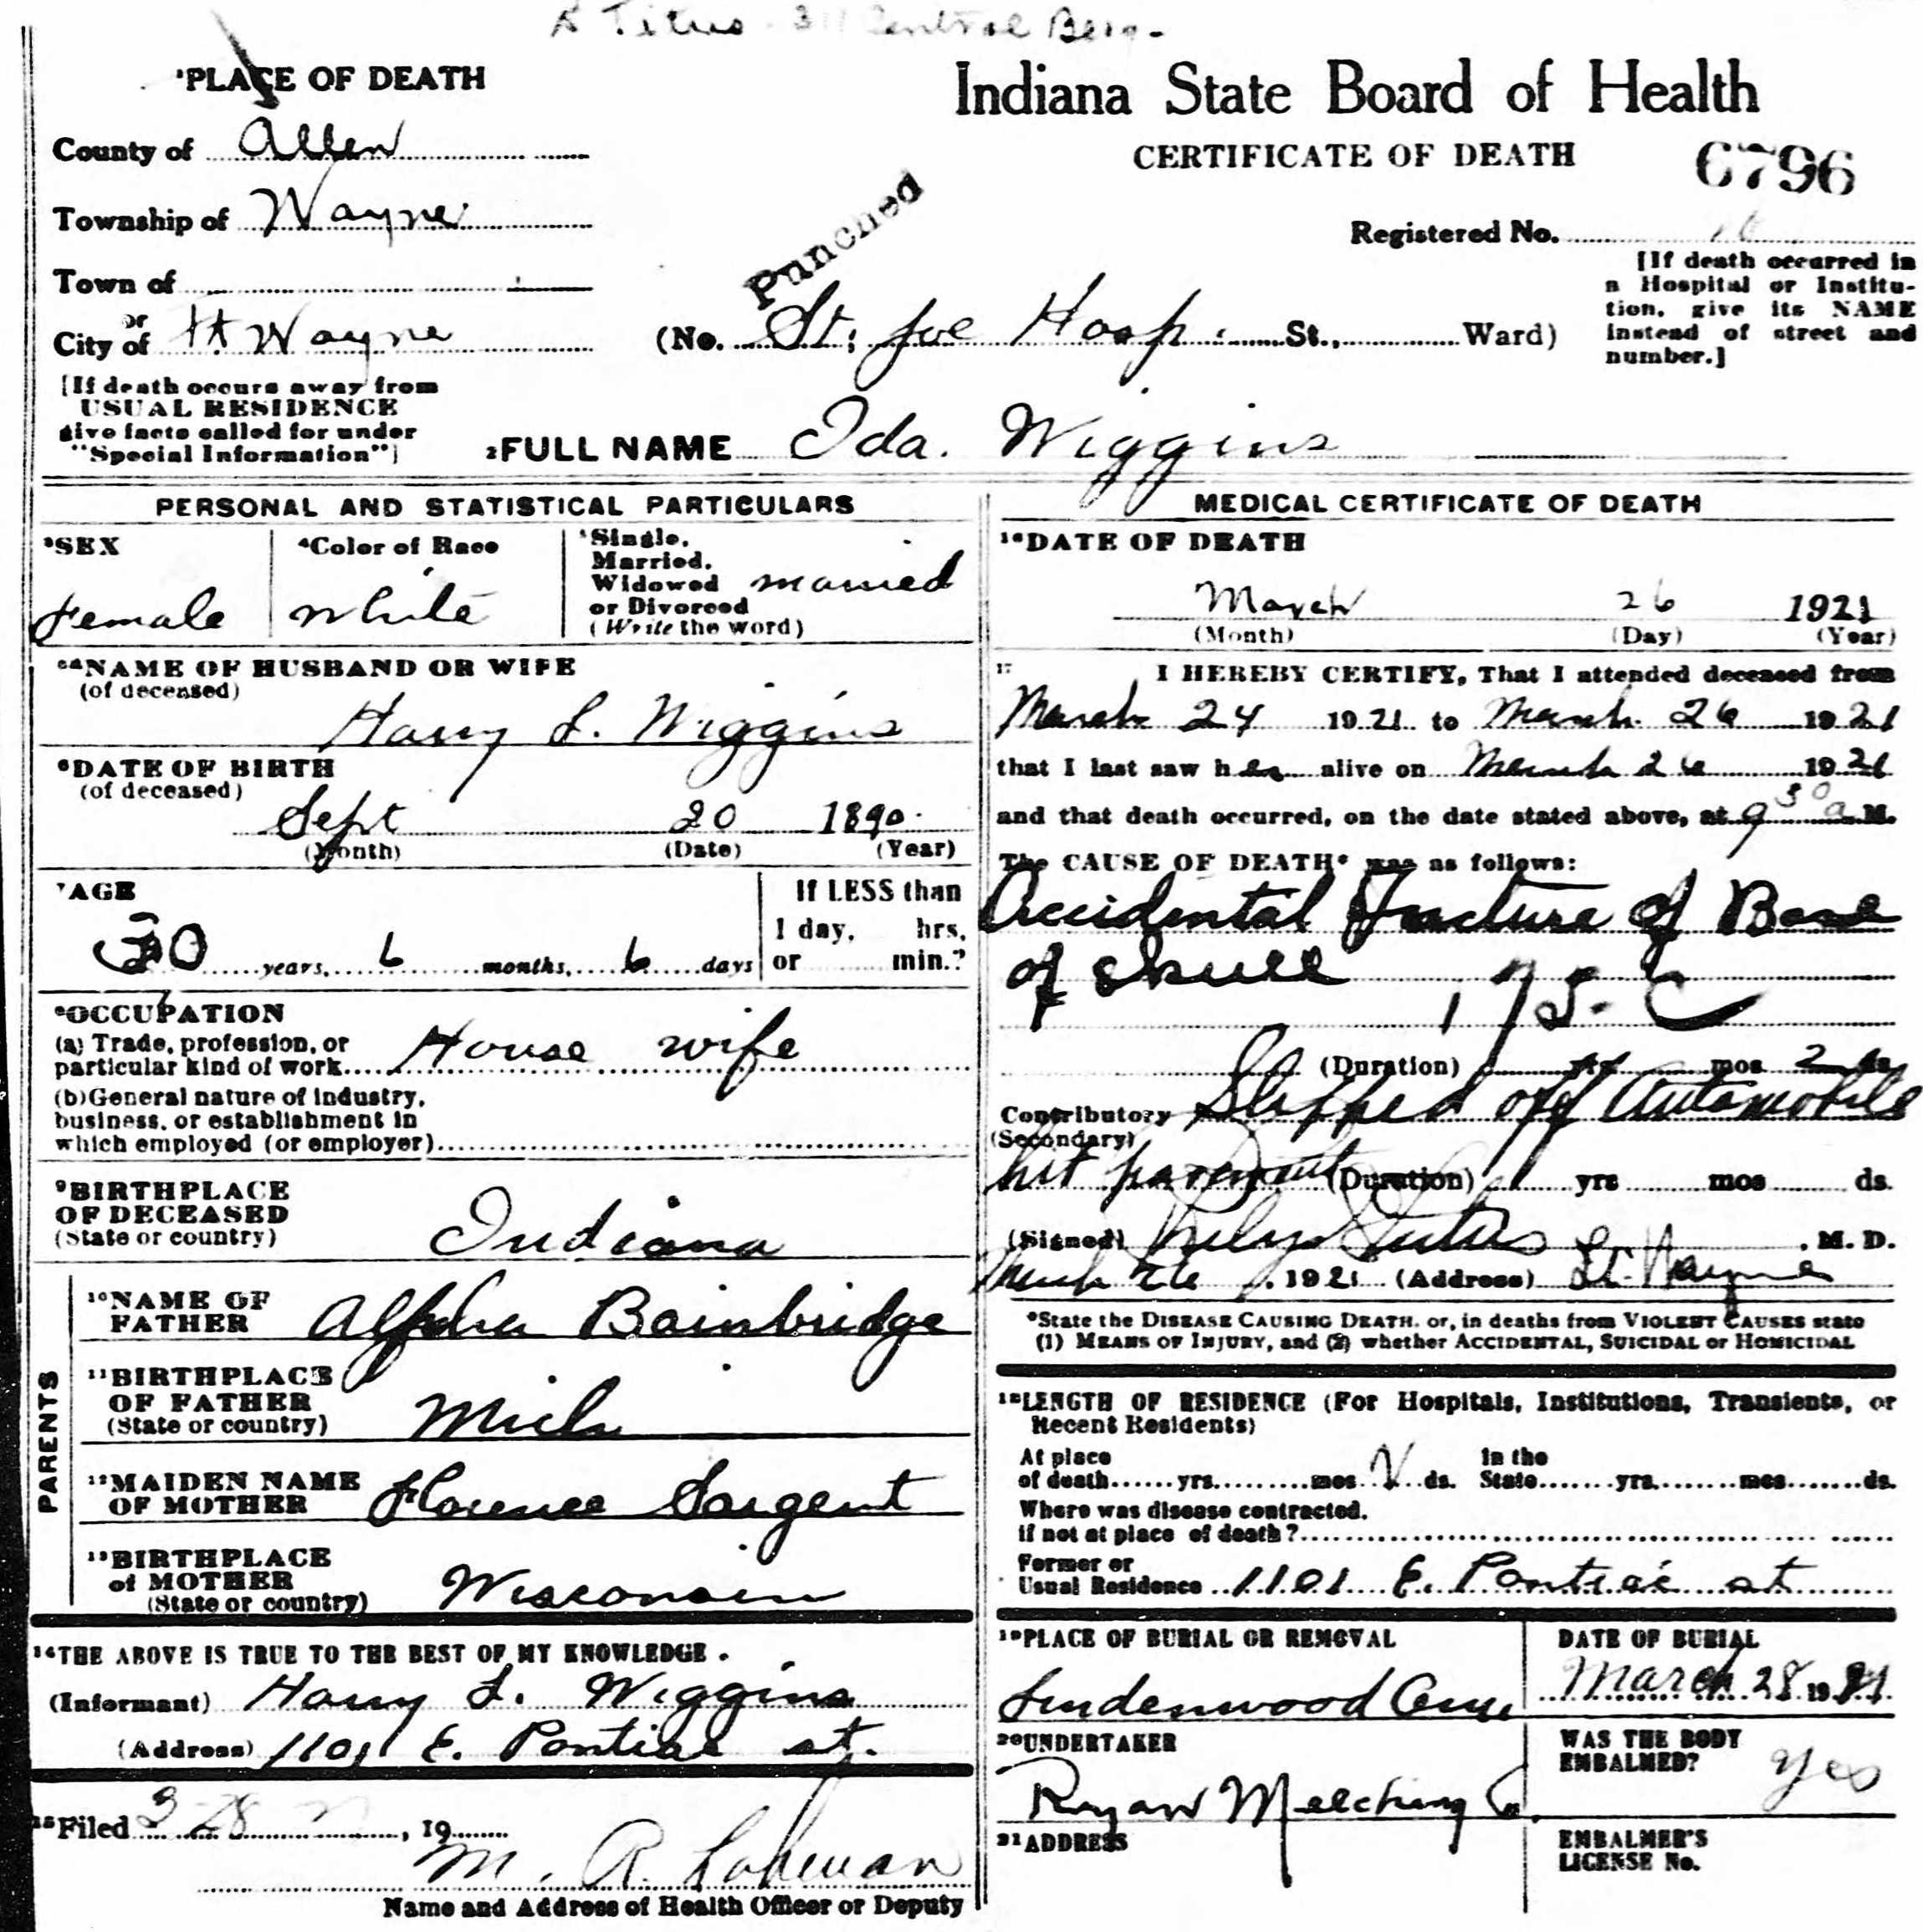 Titus 311 Central Berg.
¹PLACE OF DEATH
County of Allen
Township of Wayne
Town of
or
City of Ft Wayne
[If death occurs away from
USUAL RESIDENCE
give facts called for under
"Special Information"]
Indiana State Board of Health
CERTIFICATE OF DEATH
6796
Punched
Registered No.
[If death occurred in
a Hospital or Institu-
tion, give its NAME
instead of street and
number.]
(No. St; Joe Hosp. St., Ward)
²FULL NAME Ida. Wiggins
PERSONAL AND STATISTICAL PARTICULARS
³SEX
Female
⁴Color of Race
White
⁵Single,
Married,
Widowed
or Divorced
(Write the word)
married
⁵ᵃNAME OF HUSBAND OR WIFE
(of deceased)
Harry L. Wiggins
⁶DATE OF BIRTH
(of deceased)
Sept 20 1890.
(Month) (Date) (Year)
⁷AGE
30 years, 6 months, 6 days
If LESS than
1 day, hrs.
or min.?
⁸OCCUPATION
(a) Trade, profession, or
particular kind of work House wife
(b) General nature of industry,
business, or establishment in
which employed (or employer)
⁹BIRTHPLACE
OF DECEASED
(State or country)
Indiana
PARENTS
¹⁰NAME OF
FATHER
Alpha Bainbridge
¹¹BIRTHPLACE
OF FATHER
(State or country)
Mich
¹²MAIDEN NAME
OF MOTHER
Florence Sargent
¹³BIRTHPLACE
of MOTHER
(State or country)
Wisconsin
¹⁴THE ABOVE IS TRUE TO THE BEST OF MY KNOWLEDGE.
(Informant) Harry L. Wiggins
(Address) 1101 E. Pontiac st.
¹⁵Filed 3-28, 19
M. R. Lohman
Name and Address of Health Officer or Deputy
MEDICAL CERTIFICATE OF DEATH
¹⁶DATE OF DEATH
March 26 1921
(Month) (Day) (Year)
¹⁷ I HEREBY CERTIFY, That I attended deceased from
March 24 1921 to March 26 1921
that I last saw her alive on March 26 1921
and that death occurred, on the date stated above, at 9³⁰ a M.
The CAUSE OF DEATH* was as follows:
Accidental Fracture of Base
of Skull 175-C
(Duration) yrs mos 2 ds
Contributory Slipped off Automobile
(Secondary)
hit pavement (Duration) yrs mos ds.
(Signed) , M. D.
March 26, 1921 (Address) Ft. Wayne
*State the DISEASE CAUSING DEATH, or, in deaths from VIOLENT CAUSES state
(1) MEANS OF INJURY, and (2) whether ACCIDENTAL, SUICIDAL or HOMICIDAL
¹⁸LENGTH OF RESIDENCE (For Hospitals, Institutions, Transients, or
Recent Residents)
At place
of death yrs. mos ds.
In the
State yrs. mos. ds.
Where was disease contracted,
if not at place of death?
Former or
Usual Residence 1101 E. Pontiac st
¹⁹PLACE OF BURIAL OR REMOVAL
Lindenwood Cem.
DATE OF BURIAL
March 28 1921
²⁰UNDERTAKER
Melching Co.
WAS THE BODY
EMBALMED?
yes
²¹ADDRESS
EMBALMER'S
LICENSE No.